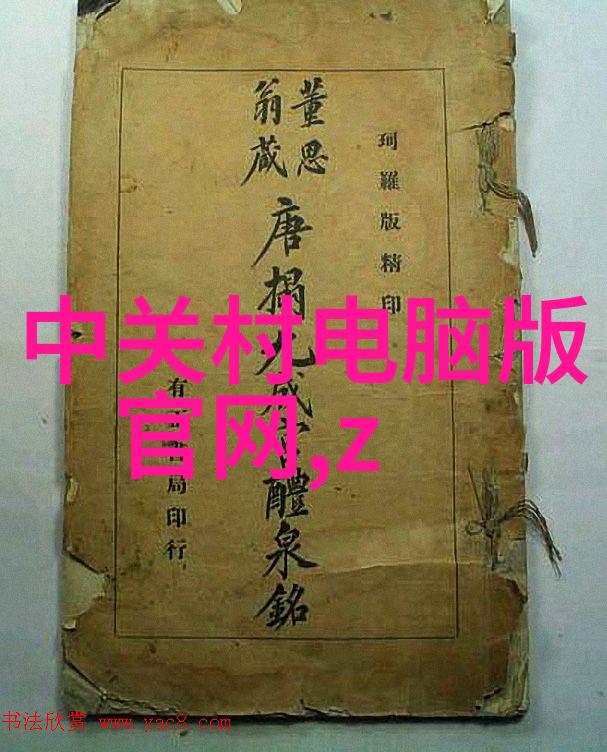 珂羅版精印
董思
翁藏
唐搨九成 醴泉銘
有 局印行
中关村电脑版
官网,z
书法欣赏 www.yac8.com